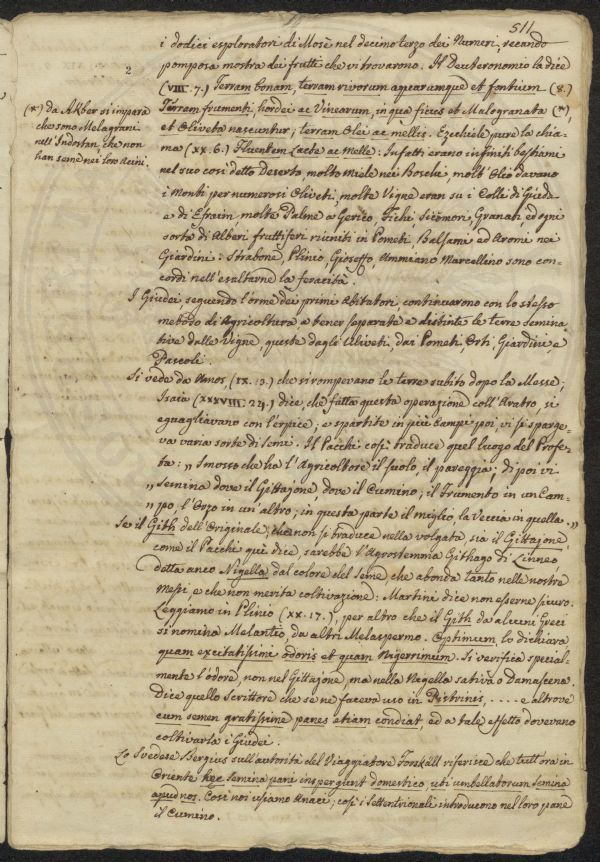 511
i dodici esploratori di Mosè nel decimo terzo dei Numeri, recando
2
pomposa mostra dei frutti che vi trovarono. Il Deuteronomio la dice
(VIII. 7.) Terram bonam, terram rivorum aquarumque et fontium (8.)
Terram frumenti, hordei ac Vinearum, in qua ficus et Malogranata (*),
et Oliveta nascuntur, terram Olei ac mellis. Ezechiele pure la chia-
(*) da Akber si impara
che sono Melagrani
nell'Indostan, che non
han seme nei loro Acini.
ma (XX. 6.) Fluentem Lacte ac Melle: Infatti erano infiniti bestiami
nel suo così detto Deserto, molto Miele nei Boschi, molt'Olio davano
i Monti per numerosi Oliveti, molte Vigne eran su i Colli di Giuda
e di Efraim molte Palme a Gerico, Fichi, Sicomori, Granati, ed ogni
sorta di Alberi fruttiferi riuniti in Pometi, Balsami ed Aromi nei
Giardini: Strabone, Plinio, Gioseffo, Ammiano Marcellino sono con-
cordi nell'esaltarne la feracità.
I Giudei seguendo l'orme dei primi Abitatori, continuarono con lo stesso
metodo di Agricoltura a tener separate e distinte le terre semina-
tive dalle Vigne, queste dagli Uliveti, dai Pometi, Orti, Giardini, e
Pascoli.
Si vede da Amos, (IX. 13.) che si rompevano le terre subito dopo la Messe;
Isaia (XXXVIII. 24.) dice, che fatta questa operazione coll'Aratro, si
eguagliavano con l'erpice; e spartite in più Campi poi vi si sparge-
va varia sorte di semi. Il Pacchi così traduce quel luogo del Profe-
ta: „ Smosso che ha l'Agricoltore il suolo, il pareggia; di poi vi
„ Semina dove il Gittajone, dove il Cumino; il Frumento in un Cam-
„ po, l'Orzo in un'altro; in questa parte il miglio, la Veccia in quella. „
Se il Gith dell'Originale, che non si traduce nella volgata, sia il Gittajone,
come il Pacchi qui dice, sarebbe l'Agrostemma Githago di Linneo,
detta anco Nigella dal colore del Seme, che abonda tanto nelle nostre
Messi e che non merita coltivazione: Martini dice non esserne sicuro.
Leggiamo in Plinio (XX. 17.), per altro che il Gith da alcuni Greci
si nomina Melantio, da altri Melaspermo. Optimum, lo dichiara
quam excitatissimi odoris et quam Nigerrimum. Si verifica special-
mente l'odore, non nel Gittajone, ma nella Nigella sativa o Damascena.
Dice quello Scrittore che se ne faceva uso in Pistrinis, ..... e altrove
cum semen gratissime panes etiam condiat, ed a tale effetto dovevano
coltivarla i Giudei.
Lo Svedese Bergius sull'autorità del Viaggiatore Forskåll riferisce che tutt'ora in
Oriente haec Semina pani inspergunt domestico, uti umbellatorum Semina
apud nos. Così noi usiamo Anaci; così i Settentrionali introducono nel loro pane
il Cumino.